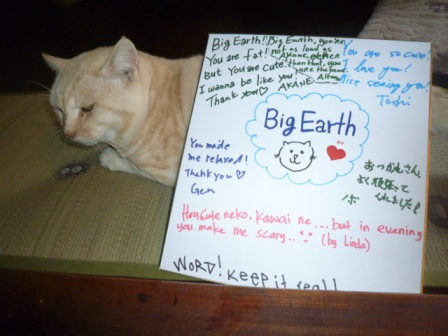 Big Earth!!
You are fat!
But You are cute.
I wanna be like you!
Thank you♡ AKANE
Big Earth, you're
not as loud as
Akane,
than that, you
are the same.
You are so cute
I love you!
Nice seeing you!
Tochi
Big Earth
You made
me relaxed!
Thank you♡
Gen
おっかぁさん、
よく頑張って
くれました!
ノボ
Hey cute neko. Kawai ne....but in evening
you make me scary.. (by Linda)
WORD! Keep it real!